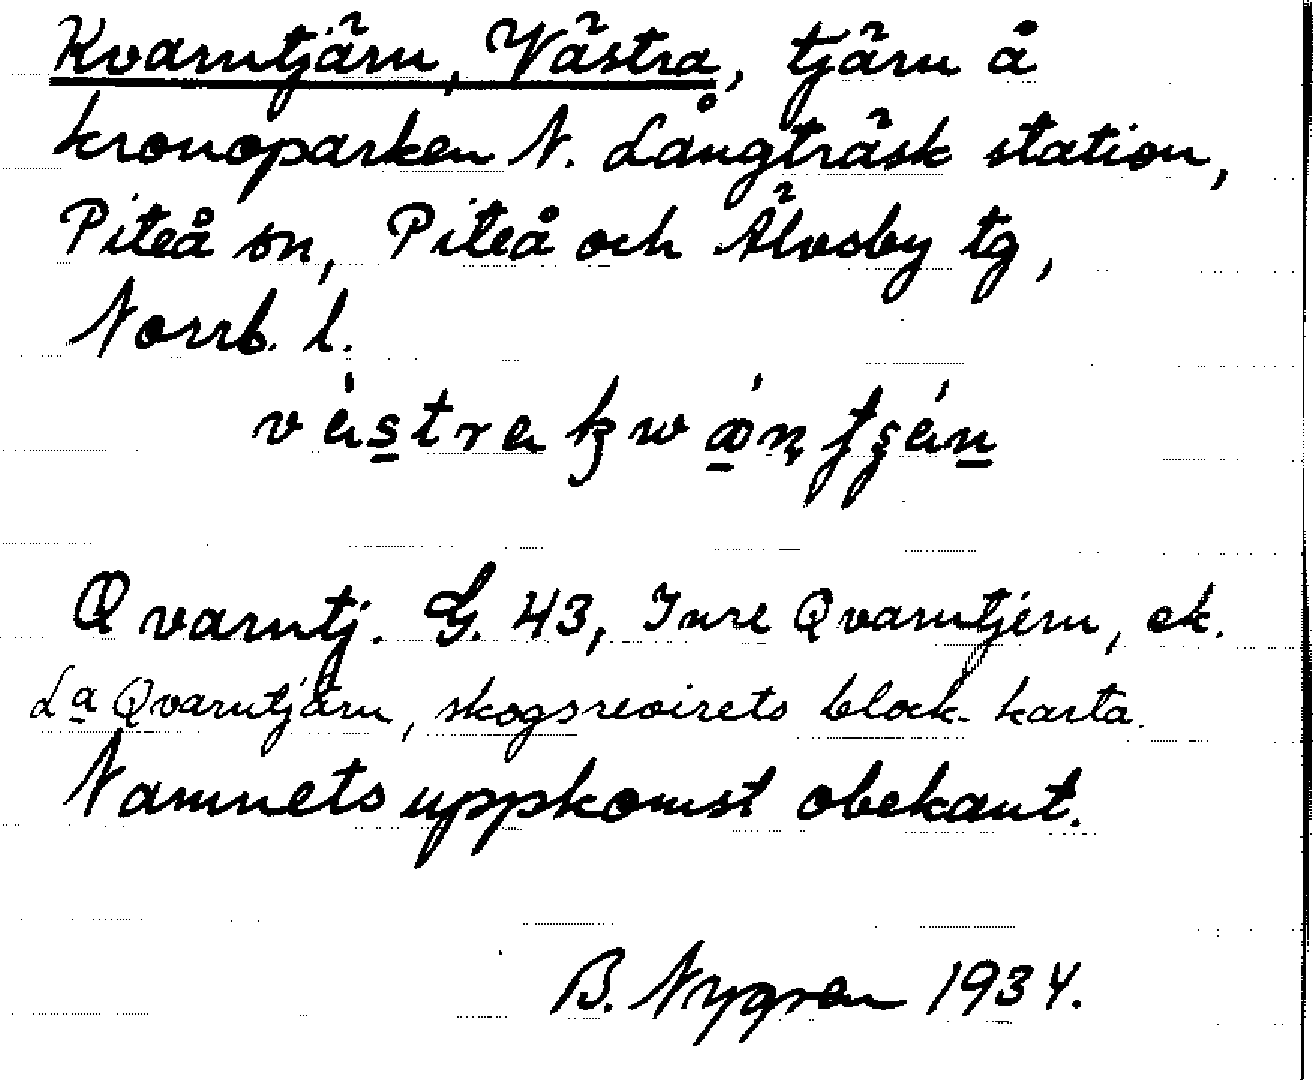 Kvarntjärn, Västra, tjärn å
kronoparken N. Långträsk station,
Piteå sn, Piteå och Älvsby tg,
Norrb. l.
Qvarntj. G. 43, Inre Qvarntjern, ek.
La Qvarntjärn, skogsrevirets block-karta.
Namnets uppkomst obekant.
B. Nygren 1934.